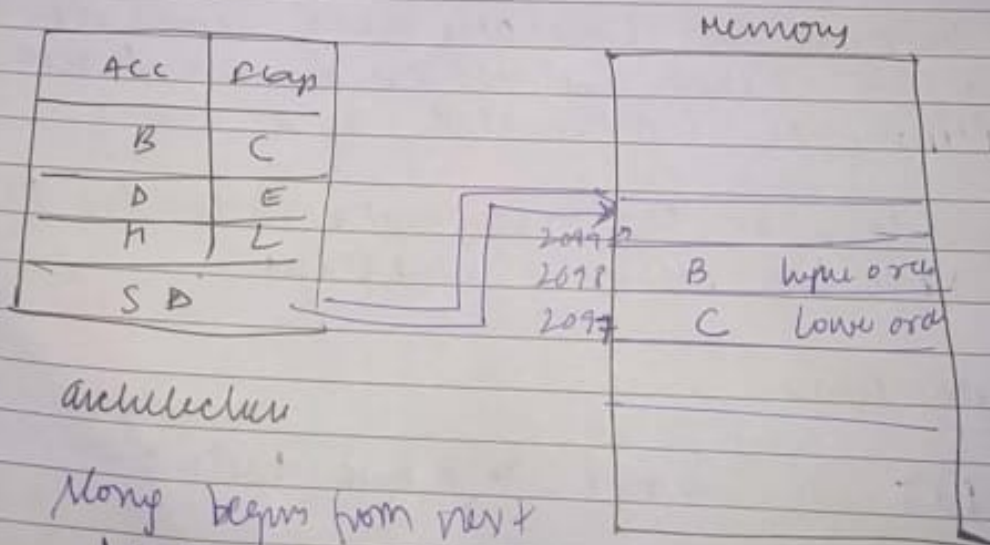 Memory
ACC Flags
B C
D E
H L
2099
S P
2098 B higher order
2097 C Lower order
architecture
begins from next